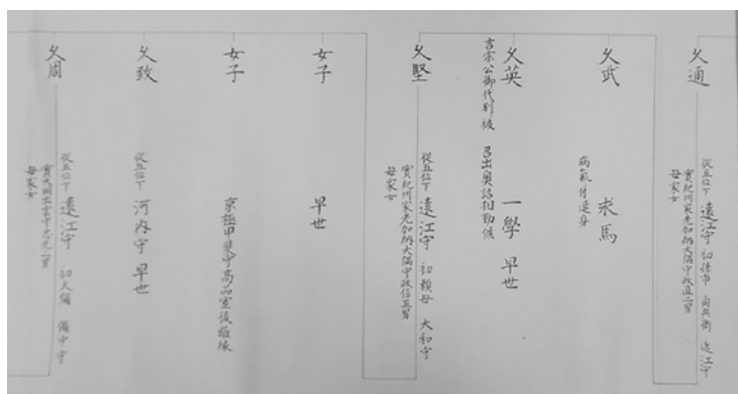 久通
從五位下 遠江守 初孫市 角兵衛 近江守
實紀州家老加納大隅守政直二男
母家女
久武
求馬
病氣付退身
久英
一學 早世
吉宗公御代別被 召出奥詰相勤候
久堅
從五位下 遠江守 初頼母 大和守
實紀州家老加納大隅守政信五男
母家女
女子
早世
女子
京極甲斐守高品室後離縁
久致
從五位下 河内守 早世
久周
從五位下 遠江守 初大彌 備中守
實大岡出雲守忠光二男
母家女